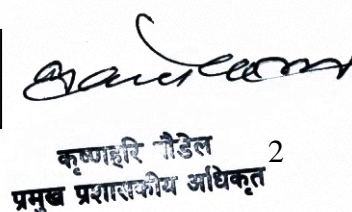 कृष्णहरि पौडेल
2
प्रमुख प्रशासकीय अधिकृत